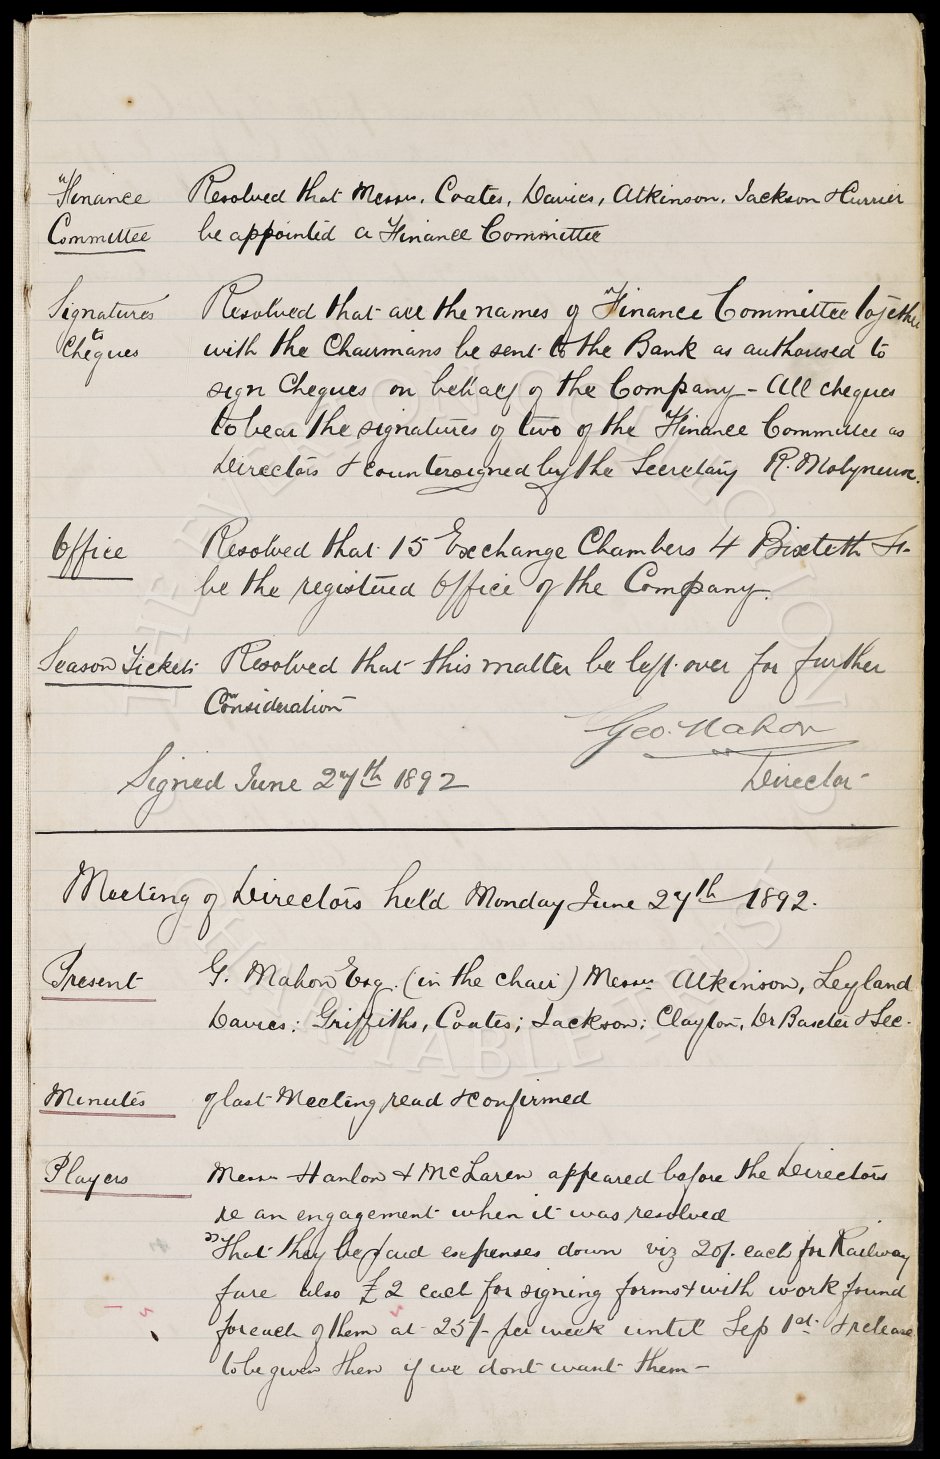 "Finance Resolved that Messrs. Coates, Davies, Atkinson, Jackson & Currier
Committee be appointed a Finance Committee
Signatures to Cheques Resolved that all the names of "Finance Committee together
with the Chairmans be sent to the Bank as authorised to
sign Cheques on behalf of the Company - All cheques
to bear the signatures of two of the Finance Committee as
Directors & countersigned by the Secretary R. Molyneux.
Office Resolved that 15 Exchange Chambers 4 Bixteth St.
be the registered Office of the Company.
Season Tickets Resolved that this matter be left over for further
Consideration
Geo. Mahon
Signed June 27th 1892 Director
Meeting of Directors held Monday June 27th 1892.
Present G. Mahon Esq. (in the chair) Messrs Atkinson, Leyland
Davies; Griffiths, Coates; Jackson; Clayton, Dr Baxter & Sec.
Minutes of last Meeting read & confirmed
Players Messrs Hanlon & McLaren appeared before the Directors
re an engagement when it was resolved
That they be paid expenses down viz 20/- each for Railway
fare also £2 each for signing forms & with work found
for each of them at 25/- per week until Sep 1st & release
to be given then if we dont want them -
THE EVERTON COLLECTION
CHARITABLE TRUST